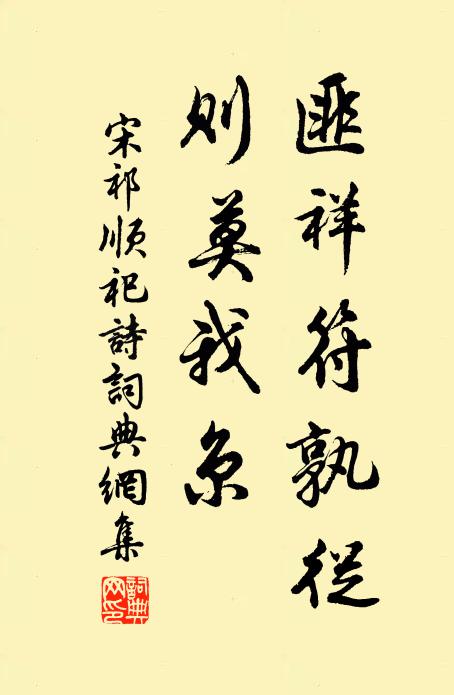 匪祥符孰從
則莫我京
宋祁順祀詩詞典網集
詞典网印